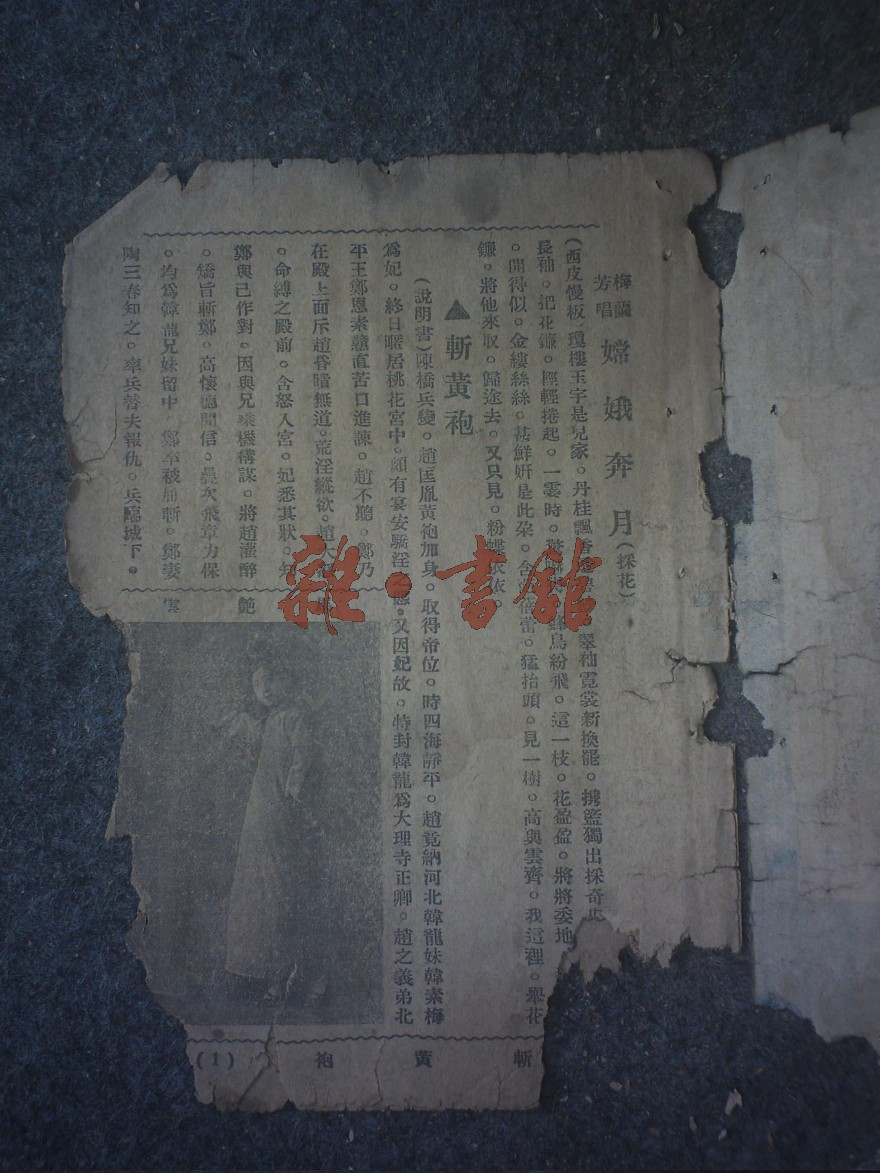 梅蘭
芳唱
嫦娥奔月(採花)
(西皮慢板)瓊樓玉宇是兒家。丹桂飄香翠袖霓裳新換罷。攜籃獨出採奇葩
長袖。把花鐮。輕輕捲起。一霎時。蜂鳥紛飛。這一枝。花盈盈。將將委地
。開得似。金縷絲絲。甚鮮姸是此朶。含蕾。猛抬頭。見一樹。高與雲齊。我這裡。舉花
鐮。將他來取。歸途去。又只見。粉蝶依依。
▲斬黃袍
(說明書)陳橋兵變。趙匡胤黃袍加身。取得帝位。時四海靜平。趙竟納河北韓龍妹韓素梅
爲妃。終日暱居桃花宮中。頗有宴安驕淫之。又因妃故。特封韓龍爲大理寺正卿。趙之義弟北
平王鄭恩素戇直苦口進諫。趙不聽。鄭乃
在殿上面斥趙昏瞶無道。荒淫縱欲。趙大
。命縛之殿前。含怒入宮。妃悉其狀。知
鄭與己作對。因與兄乘機構謀。將趙灌醉
。矯旨斬鄭。高懷德聞信。力保
。均爲韓龍兄妹留中。鄭卒被屈斬。鄭妻
陶三春知之。率兵替夫報仇。兵臨城下。
艷
雲
雜·書館
斬黃袍
(1)